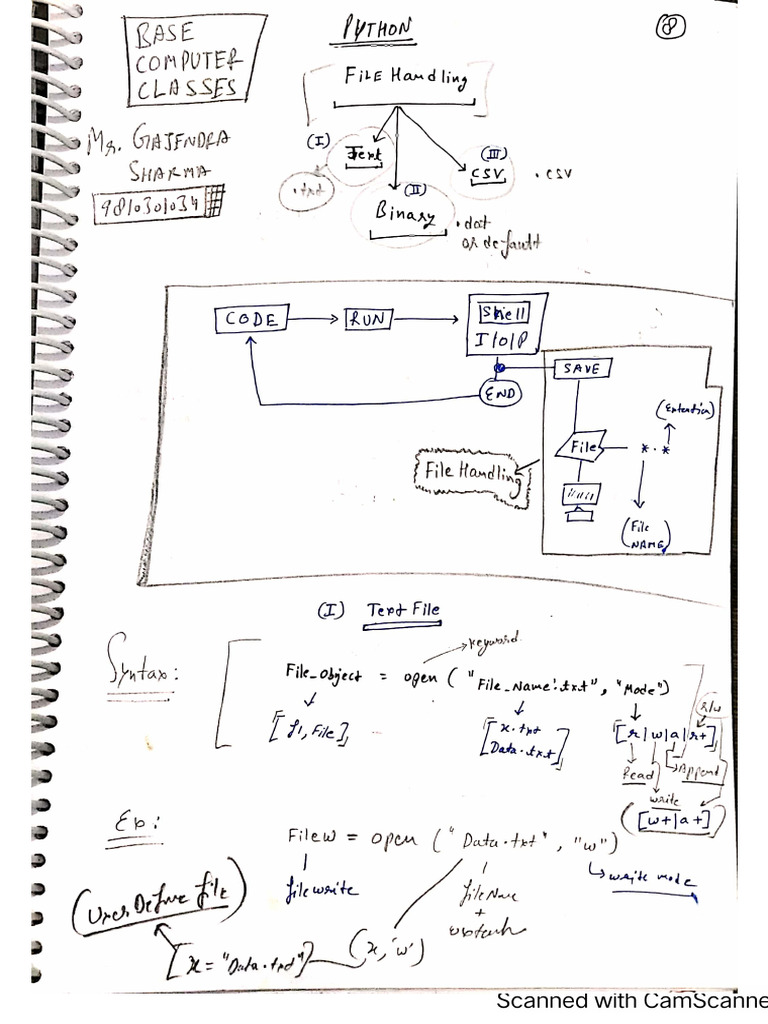 BASE
COMPUTER
CLASSES
PYTHON
8
FILE Handling
Mr. GAJENDRA
SHARMA
9810301034
(I)
Text
.txt
(II)
Binary
.dat
or default
(III)
CSV
.csv
CODE
RUN
Shell
I/O/P
END
SAVE
File
*.*
(Extention)
(File
NAME)
File Handling
(I) Text File
Syntax:
keyword
File_object = open ("File_Name.txt", "Mode")
[f1, File]
[x.txt
Data.txt]
r/w
[r|w|a|r+]
Read
Append
write
([w+|a+])
Ex:
Filew = open ("Data.txt", "w")
filewrite
write mode
fileName
+
(User Define file)
[x = "Data.txt"]
(x,'w')
Scanned with CamScanne